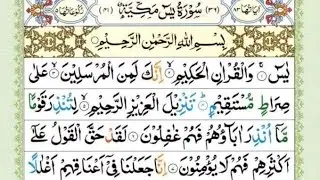 سُوۡرَةُ يٰسٓ مَكِّيَّةٌ
بِسۡمِ اللّٰهِ الرَّحۡمٰنِ الرَّحِيۡمِ
يٰسٓ ۚ وَالۡقُرۡاٰنِ الۡحَكِيۡمِ ۙ اِنَّكَ لَمِنَ الۡمُرۡسَلِيۡنَ ۙ عَلٰى
صِرَاطٍ مُّسۡتَقِيۡمٍ ؕ تَنۡزِيۡلَ الۡعَزِيۡزِ الرَّحِيۡمِ ۙ لِتُنۡذِرَ قَوۡمًا
مَّاۤ اُنۡذِرَ اٰبَآؤُهُمۡ فَهُمۡ غٰفِلُوۡنَ لَقَدۡ حَقَّ الۡقَوۡلُ عَلٰٓى
اَكۡثَرِهِمۡ فَهُمۡ لَا يُؤۡمِنُوۡنَ اِنَّا جَعَلۡنَا فِىۡۤ اَعۡنَاقِهِمۡ اَغۡلٰلًا